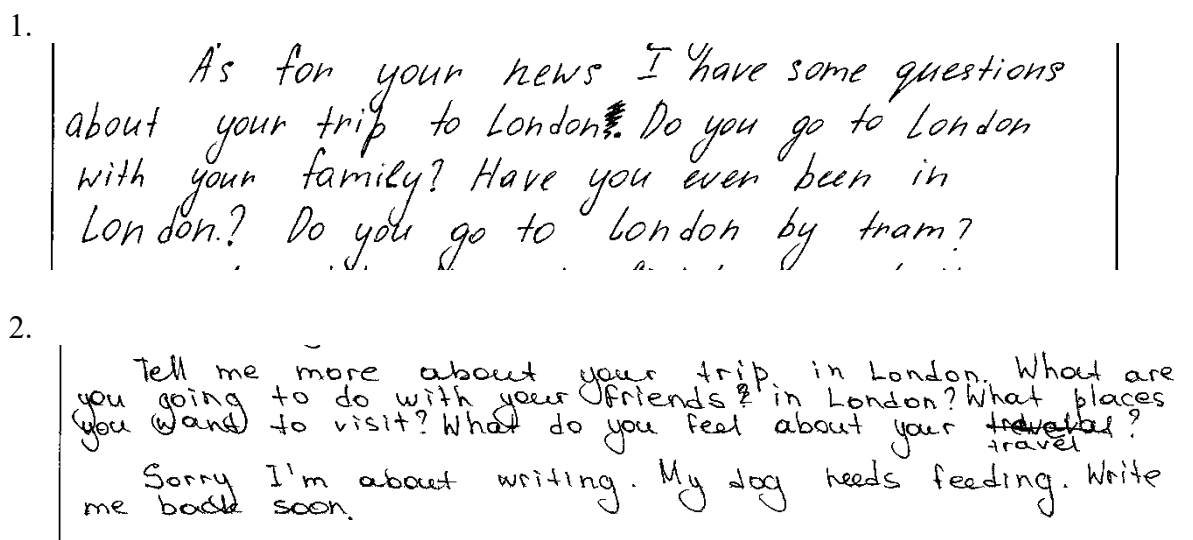 1.
As for your news I have some questions
about your trip to London. Do you go to London
with your family? Have you ever been in
London.? Do you go to London by tram?
2.
Tell me more about your trip in London. What are
you going to do with your friends? in London? What places
you wand to visit? What do you feel about your
travel?
Sorry I'm about writing. My dog needs feeding. Write
me back soon.